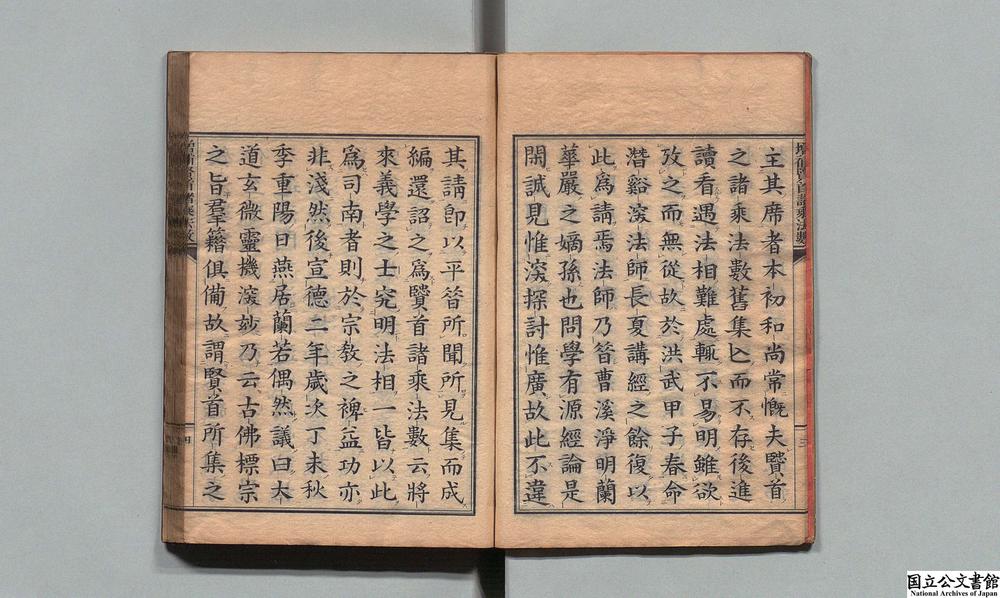 主其席者本初和尚常慨夫賢首
之諸乘法數舊集亾而不存後進
讀看遇法相難處輒不易明雖欲
攷之而無從故於洪武甲子春命
潛谿深法師長夏講經之餘復以
此爲請焉法師乃昝曹溪淨明蘭
華嚴之嫡孫也問學有源經論是
閑誠見惟深探討惟廣故此不違
其請即以平昝所聞所見集而成
編還詔之爲賢首諸乘法數云將
來義學之士究明法相一皆以此
爲司南者則於宗教之裨益功亦
非淺然後宣德二年歲次丁未秋
季重陽日燕居蘭若偶然議曰大
道玄微靈機深妙乃云古佛標宗
之旨羣籍俱備故謂賢首所集之
三
四
国立公文書館
National Archives of Japan